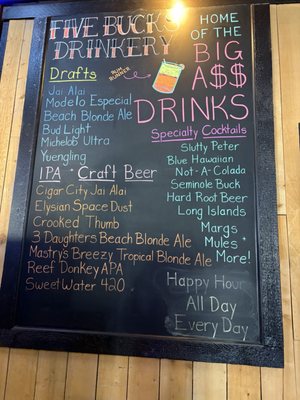 FIVE BUCKS
DRINKERY
HOME
OF THE
BIG
A$$
DRINKS
RUM
RUNNER
Drafts
Jai Alai
Modelo Especial
Beach Blonde Ale
Bud Light
Michelob Ultra
Yuengling
IPA * Craft Beer
Cigar City Jai Alai
Elysian Space Dust
Crooked Thumb
3 Daughters Beach Blonde Ale
Mastry's Breezy Tropical Blonde Ale
Reef Donkey APA
SweetWater 420
Specialty Cocktails
Slutty Peter
Blue Hawaiian
Not-A-Colada
Seminole Buck
Hard Root Beer
Long Islands
Margs
Mules +
More!
Happy Hour
All Day
Every Day